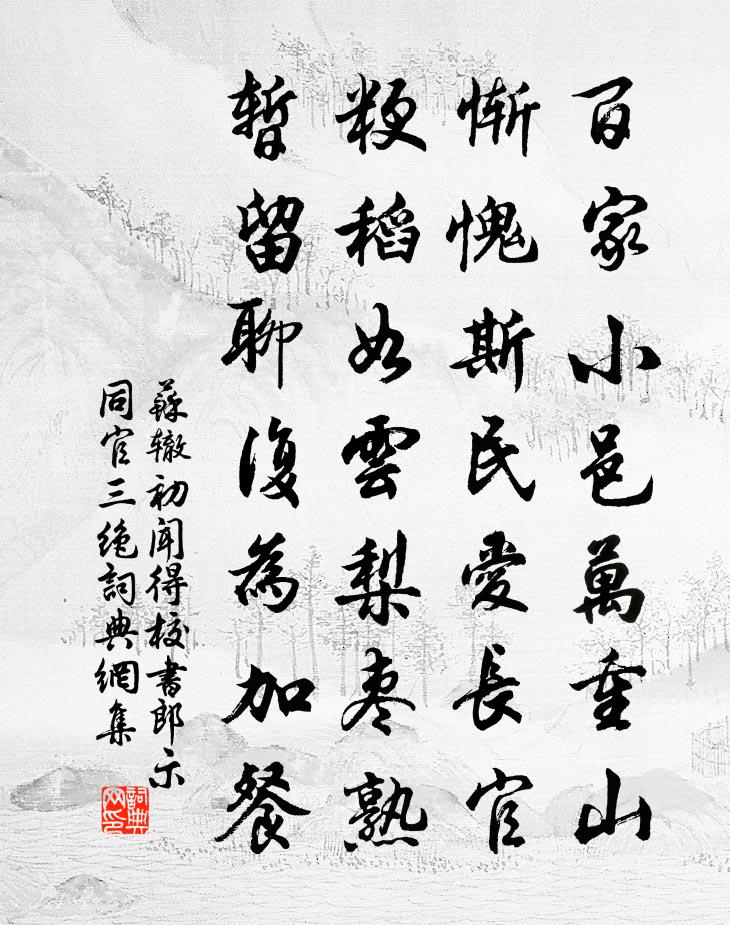 百家小邑萬重山
慚愧斯民愛長官
粳稻如雲梨棗熟
暫留聊復為加餐
蘇轍初聞得校書郎示
同官三絶詞典網集
詞典
网印